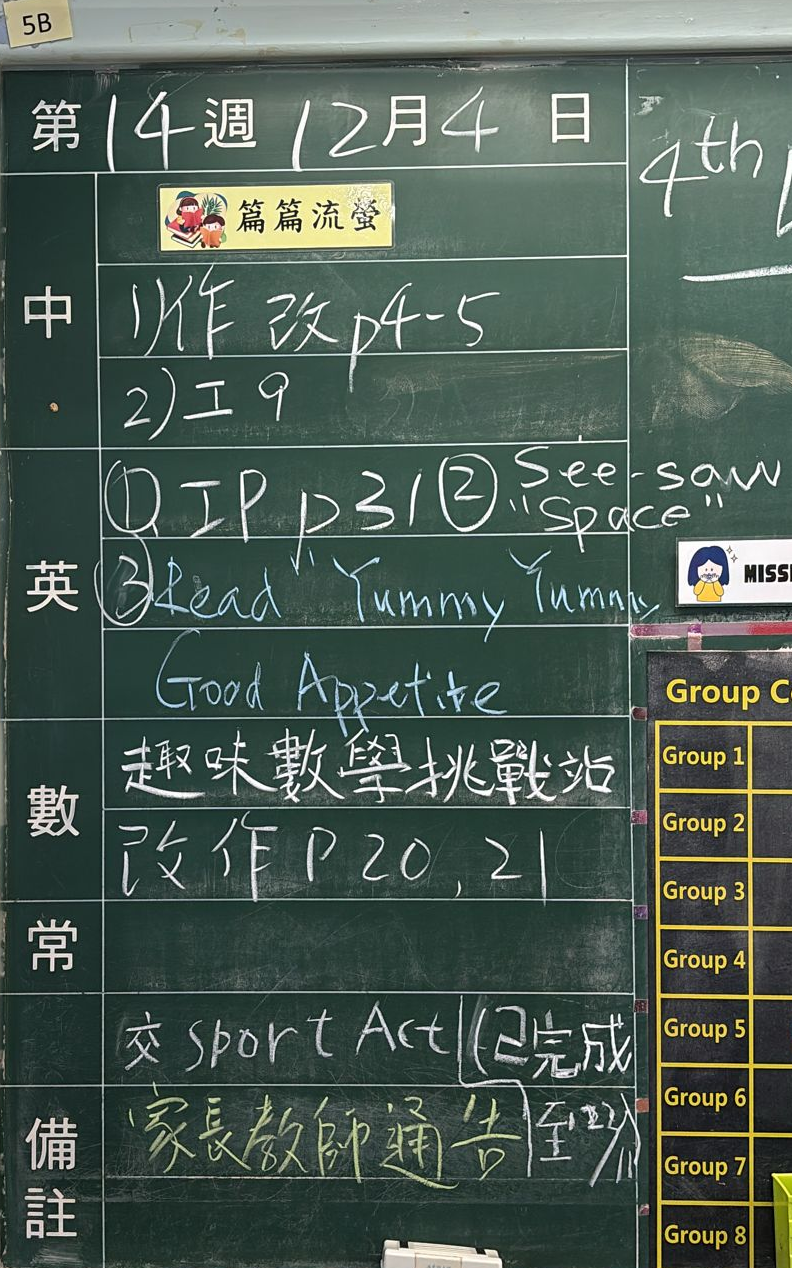 5B
第 14 週 12 月 4 日
4th
中
篇篇流螢
1)作改p4-5
2)工9
英
① IP p31 ② See-saw "Space"
③ Read "Yummy Yummy
Good Appetite
數
趣味數學挑戰站
改作P20,21
常
備註
交 sport Act (已完成
家長教師通告 至
Group
Group 1
Group 2
Group 3
Group 4
Group 5
Group 6
Group 7
Group 8